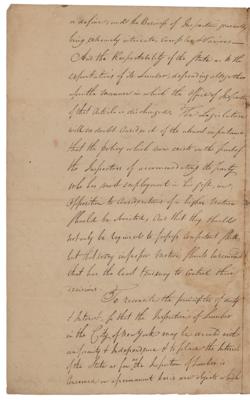 under the
being extremely
And the Respectability of the State as to the
exportation of its Lumber depending altogether
on the manner in which the office of Inspector
of that Article is discharged. The Legislature
will no doubt consider it of the utmost importance
that the policy which now exists on the part of
the Inspectors of accommodating the party
who has most employment in his gift, in
opposition to considerations of a higher nature
should be And that they should
not only be required to possess competent skill,
but that every improper motive should be removed
that has the least tendency to control their
decisions.
To reconcile the principles of duty
& Interest, so that the Inspection of Lumber
in the City of New York may be with
uniformity & Independence & to place the Interest
of the State as far as the Inspection of Lumber is
concerned on a permanent basis are objects which